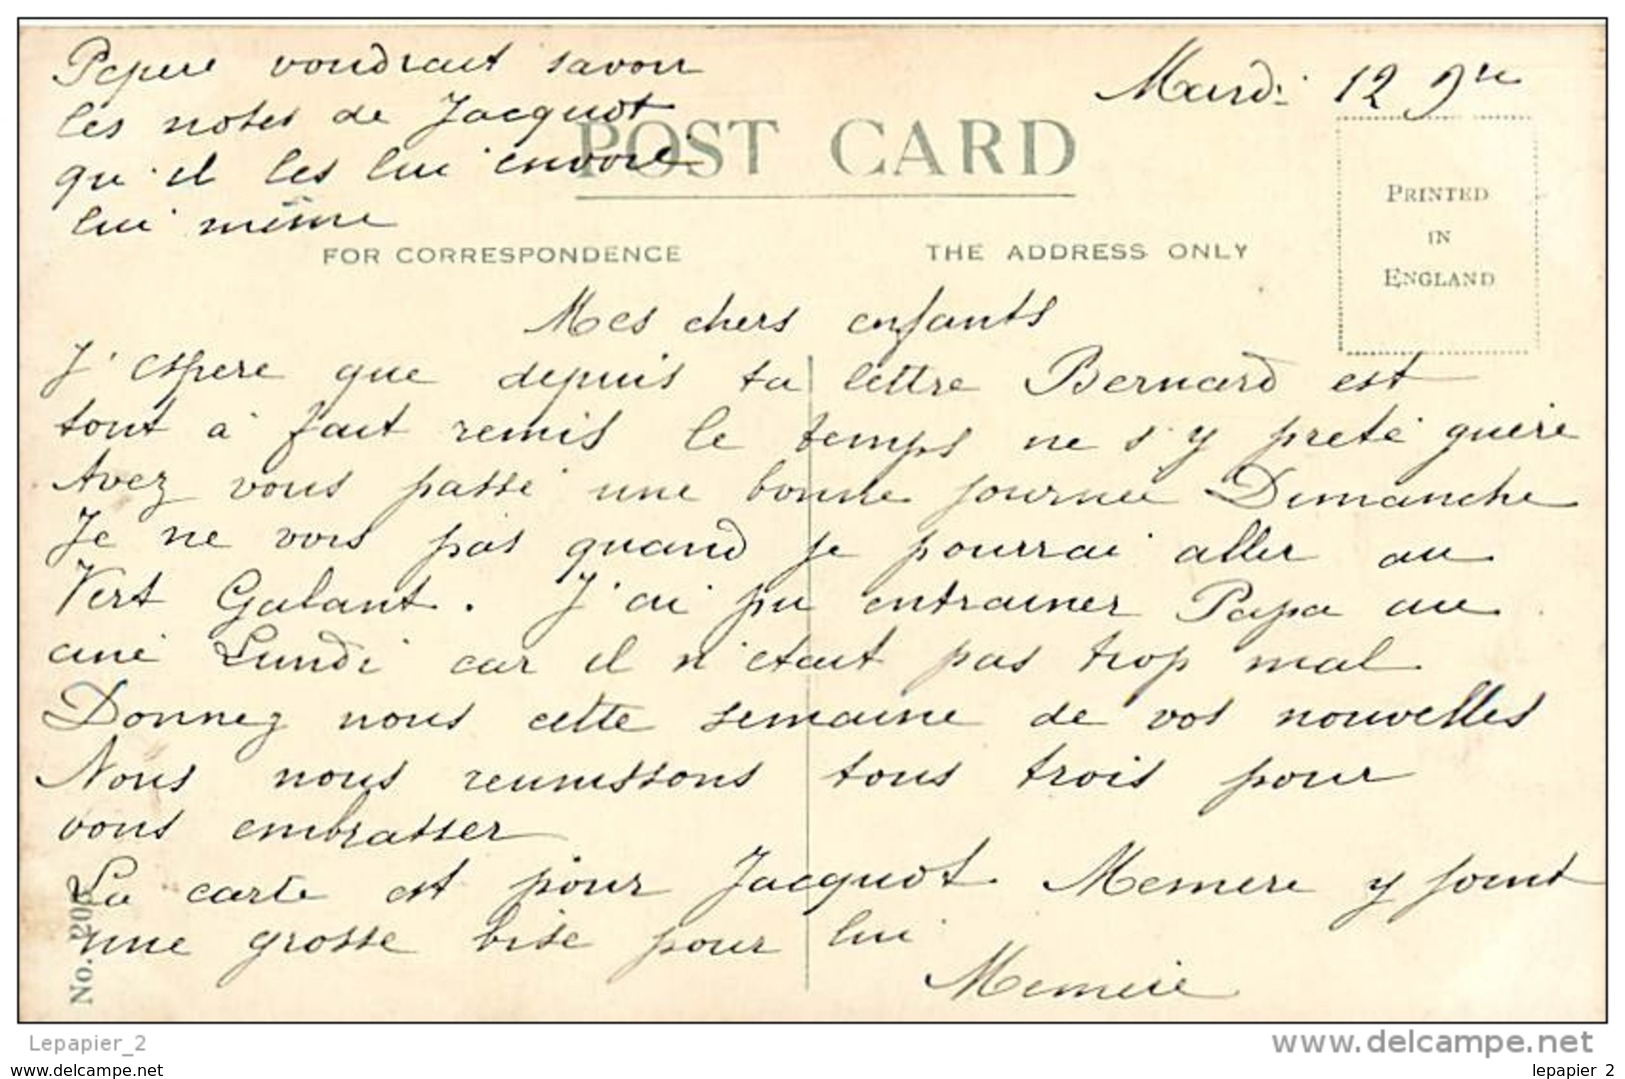 Pepere voudrait savoir
les notes de Jacquot
qu'il les lui envoie
lui même
Mardi 12 9re
POST CARD
PRINTED
IN
ENGLAND
FOR CORRESPONDENCE
THE ADDRESS ONLY
Mes chers enfants
J'espere que depuis ta lettre Bernard est
tout à fait remis le temps ne s'y prete guère
Avez vous passé une bonne journée Dimanche
Je ne vois pas quand je pourrai aller au
Vert Galant. J'ai pu entrainer Papa au
ciné Lundi car il n'etait pas trop mal
Donnez nous cette semaine de vos nouvelles
Nous nous reunissons tous trois pour
vous embrasser
La carte est pour Jacquot. Memere y joint
une grosse bise pour lui
Memere
Lepapier_2
www.delcampe.net
www.delcampe.net
lepapier_2